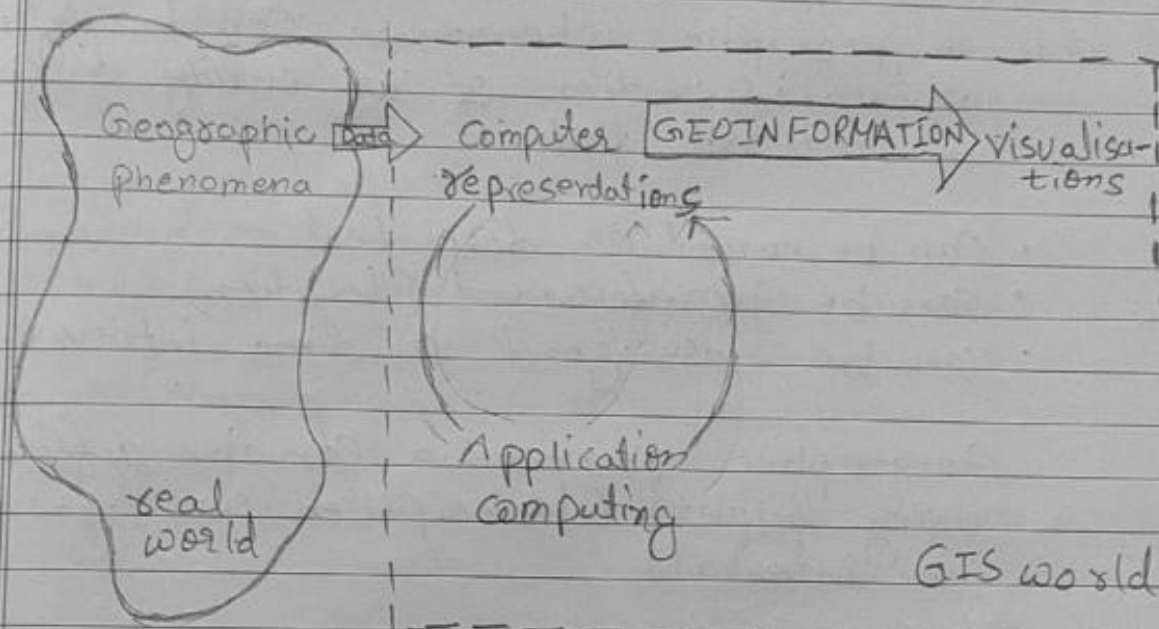 Geographic
phenomena
Data
Computer
representations
GEOINFORMATION
visualisa-
tions
Application
computing
real
world
GIS world